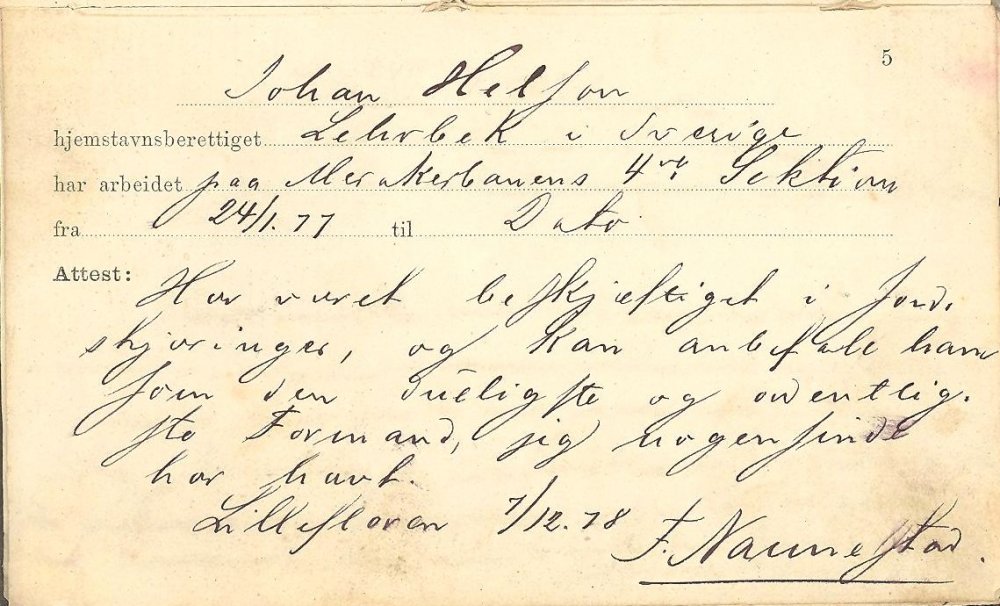 5
Johan Helsson
hjemstavnsberettiget Lehrbek i Sverige
har arbeidet paa Merakerbanens 4de Sektion
fra 24/1. 77 til Dato
Attest: Har været beskjæftiget i Jord-
skjæringer, og kan anbefale ham
som den dueligste og ordentlig-
ste Formand, jeg nogensinde
har havt.
Lillefloren 7/12. 78
F. Naunestad.